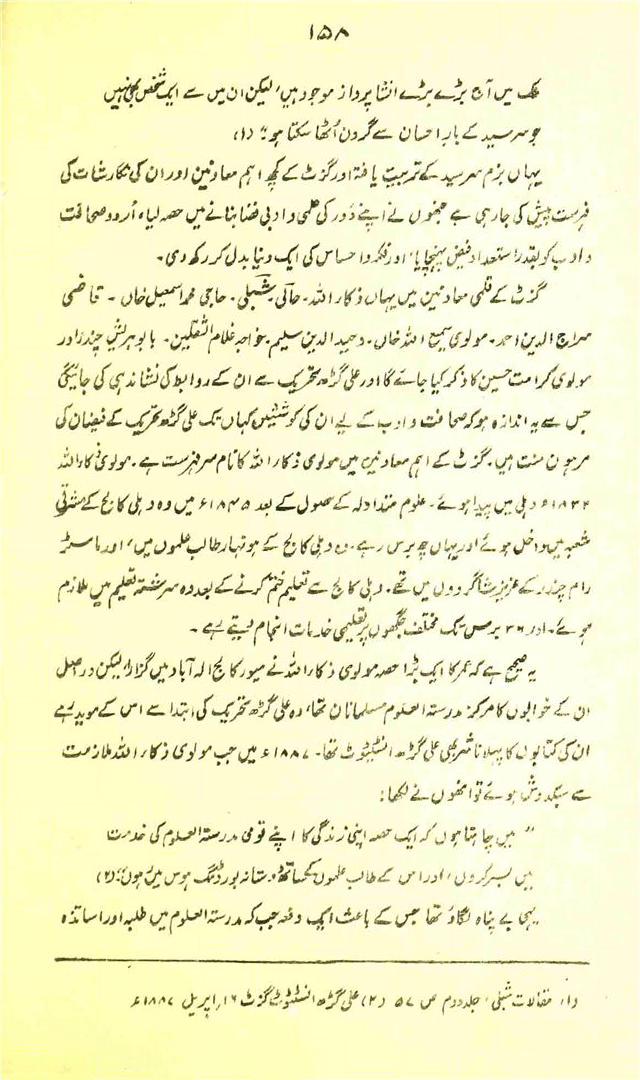 ۱۵۸
ملک میں آج بڑے بڑے انشا پرداز موجود ہیں، لیکن ان میں سے ایک شخص بھی نہیں
جو سرسید کے بارِ احسان سے گردن اُٹھا سکتا ہو؛" (۱)
یہاں بزم سرسید کے تربیت یافتہ اور گزٹ کے کچھ اہم معاونین اور ان کی نگارشات کی
فہرست پیش کی جا رہی ہے جنھوں نے اپنے دَور کی علمی و ادبی فضا بنانے میں حصہ لیا، اُردو صحافت
و ادب کو بقدر استعداد فیض پہنچایا، اور فکر و احساس کی ایک دنیا بدل کر رکھ دی۔
گزٹ کے قلمی معاونین میں یہاں ذکاء اللہ۔ حالی۔ شبلی۔ حاجی محمد اسمعیل خاں ۔ قاضی
سراج الدین احمد۔ مولوی سمیع اللہ خاں۔ وحید الدین سلیم۔ خواجہ غلام الثقلین۔ بابو ہریش چندر اور
مولوی کرامت حسین کا ذکر کیا جائے گا اور علی گڑھ تحریک سے ان کے روابط کی نشاندہی کی جائیگی
جس سے یہ اندازہ ہو کہ صحافت و ادب کے لیے ان کی کوششیں کہاں تک علی گڑھ تحریک کے فیضان کی
مرہون منت ہیں۔ گزٹ کے اہم معاونین میں مولوی ذکاء اللہ کا نام سرفہرست ہے۔ مولوی ذکاء اللہ
۱۸۳۲ء دہلی میں پیدا ہوئے۔ علوم متداولہ کے حصول کے بعد ۱۸۴۵ء میں وہ دہلی کالج کے مشرقی
شعبہ میں داخل ہوئے اور یہاں چھ برس رہے۔ وہ دہلی کالج کے ہونہار طالب علموں میں، اور ماسٹر
رام چندر کے عزیز شاگردوں میں تھے۔ دہلی کالج سے تعلیم ختم کرنے کے بعد وہ سررشتۂ تعلیم میں ملازم
ہوئے۔ اور ۳۶ برس تک مختلف جگہوں پر تعلیمی خدمات انجام دیتے رہے ۔
یہ صحیح ہے کہ عمر کا ایک بڑا حصہ مولوی ذکاء اللہ نے میور کالج الہ آباد میں گزارا، لیکن دراصل
ان کے خوابوں کا مرکز مدرستہ العلوم مسلمانان تھا، وہ علی گڑھ تحریک کی ابتدا سے اس کے موید رہے
ان کی کتابوں کا پہلا ناشر بھی علی گڑھ انسٹیٹوٹ تھا۔ ۱۸۸۷ء میں جب مولوی ذکاء اللہ ملازمت
سے سبکدوش ہوئے تو انھوں نے لکھا:
" میں چاہتا ہوں کہ ایک حصہ اپنی زندگی کا اپنے قومی مدرستہ العلوم کی خدمت
میں بسر کروں، اور اس کے طالب علموں کے ساتھ بورڈنگ ہوس میں ہوں"؛ (۲)
یہی بے پناہ لگاؤ تھا جس کے باعث ایک دفعہ جب کہ مدرستہ العلوم میں طلبہ اور اساتذہ
(۱) مقالات شبلی، جلد دوم ص ۵۷ (۲) علی گڑھ انسٹیٹوٹ گزٹ ۱۶؍ اپریل ۱۸۸۷ء